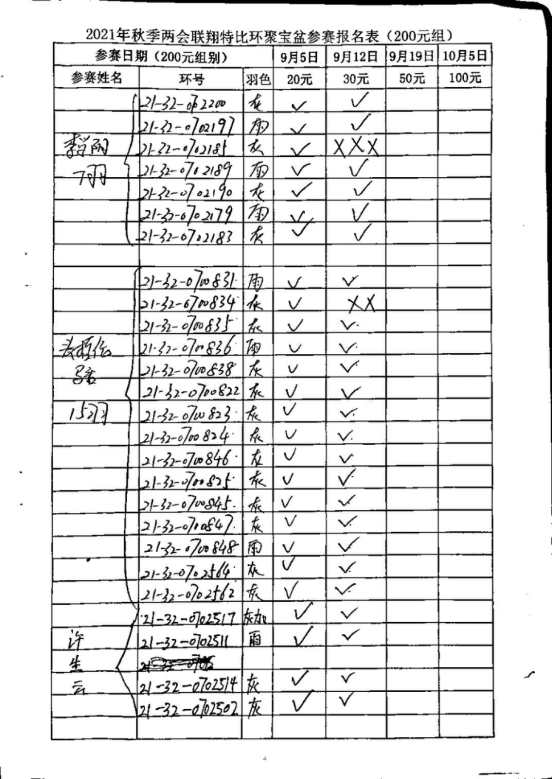 2021年秋季两会联翔特比环聚宝盆参赛报名表（200元组）
参赛日期（200元组别） 9月5日 9月12日 9月19日 10月5日
参赛姓名 环号 羽色 20元 30元 50元 100元
21-32-0702200 灰 ✓ ✓
21-32-0702197 雨 ✓ ✓
21-32-0702185 灰 ✓ XXX
21-32-0702189 雨 ✓ ✓
7羽 21-32-0702190 灰 ✓ ✓
21-32-0702179 雨 ✓ ✓
21-32-0702183 灰 ✓ ✓
21-32-0700831 雨 ✓ ✓
21-32-0700834 灰 ✓ XX
21-32-0700835 灰 ✓ ✓
21-32-0700836 雨 ✓ ✓
21-32-0700838 灰 ✓ ✓
21-32-0700822 灰 ✓ ✓
15羽 21-32-0700823 灰 ✓ ✓
21-32-0700824 灰 ✓ ✓
21-32-0700846 灰 ✓ ✓
21-32-0700825 灰 ✓ ✓
21-32-0700845 灰 ✓ ✓
21-32-0700847 灰 ✓ ✓
21-32-0700848 雨 ✓ ✓
21-32-0702564 灰 ✓ ✓
21-32-0702562 灰 ✓ ✓
21-32-0702517 灰加 ✓ ✓
许生云 21-32-0702511 雨 ✓ ✓
21-32-0702514 灰 ✓ ✓
21-32-0702502 灰 ✓ ✓